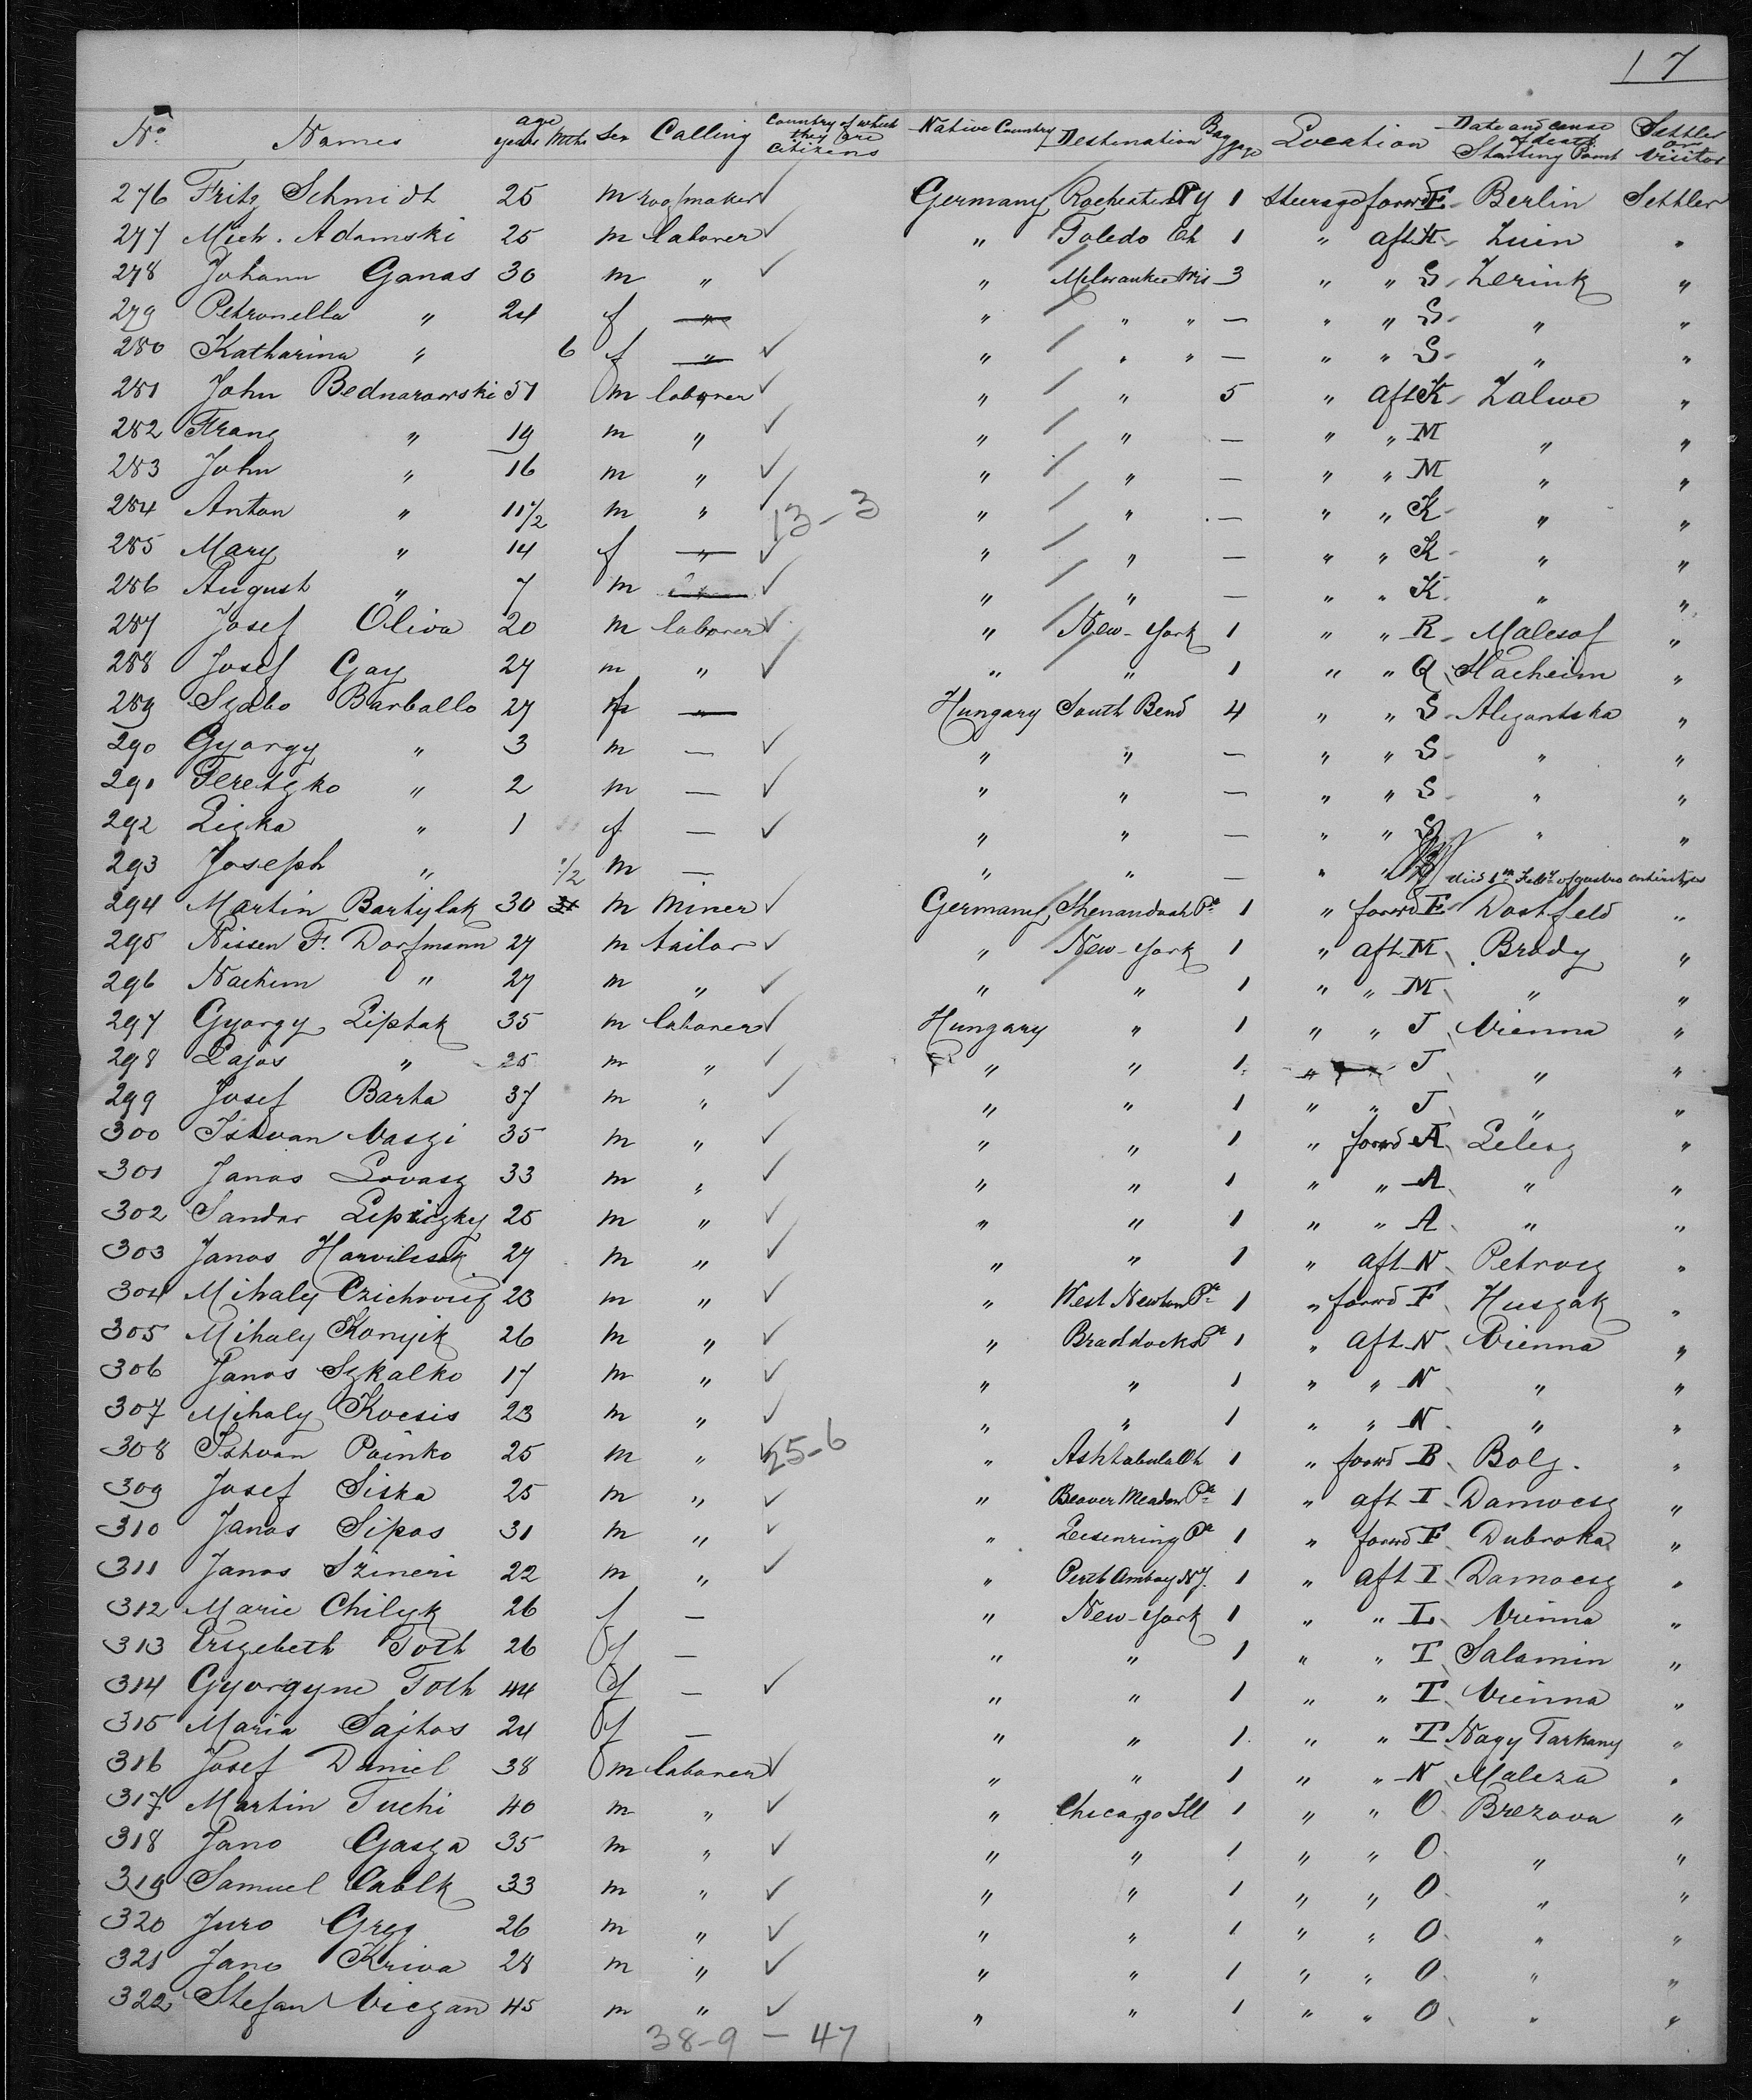 17
No. Names age years Mths Sex Calling Country of which they are citizens Native Country Destination Baggage Location Date and cause of death Starting Point Settler or Visitor
276 Fritz Schmidt 25 m roofmaker ✓ Germany Rochester NY 1 Steerage forwd E Berlin Settler
277 Mich. Adamski 25 m laborer ✓ " Toledo Oh 1 " aft K Znin "
278 Johann Ganas 30 m " ✓ " Milwaukee Wis 3 " " S Zerink "
279 Petronella " 24 f " " " " — " " S " "
280 Katharina " 6 f " ✓ " " " — " " S " "
281 John Bednarowski 51 m laborer ✓ " " 5 " aft K Zalwe "
282 Franz " 19 m " ✓ " " — " " M " "
283 John " 16 m " ✓ " " — " " M " "
284 Anton " 11 1/2 m " 13-3 " " — " " K " "
285 Mary " 14 f " ✓ " " — " " K " "
286 August " 7 m ✓ " " — " " K " "
287 Josef Oliva 20 m laborer ✓ " New-York 1 " " R Malesof "
288 Josef Gay 27 m " ✓ " " 1 " " Q Hacheim "
289 Szabo Barballo 27 f — Hungary South Bend 4 " " S Alezantska "
290 Gyorgy " 3 m — ✓ " " — " " S " "
291 Feretzko " 2 m — ✓ " " — " " S " "
292 Liska " 1 f — ✓ " " — " " S " "
293 Joseph " 1/2 m — " " — " " died 1st Feby of gastro enteritis
294 Martin Bartylak 30 m Miner ✓ Germany Shenandoah Pa 1 " forwd E Dostfeld "
295 Nissen F. Dorfmann 27 m tailor ✓ " New-York 1 " aft M Brody "
296 Nachim " 27 m " ✓ " " 1 " " M " "
297 Gyorgy Liptak 35 m laborer ✓ Hungary " 1 " " J Vienna "
298 Lajos " 25 m " ✓ " " 1 " J " "
299 Josef Barta 37 m " ✓ " " 1 " " J " "
300 Istvan Vaszi 35 m " ✓ " " 1 " forwd A Lelesz "
301 Janos Lovasz 33 m " ✓ " " 1 " " A " "
302 Sandor Lepiczky 25 m " ✓ " " 1 " " A " "
303 Janos Harvilcsak 27 m " ✓ " " 1 " aft N Petrosz "
304 Mihaly Czichrovig 23 m " ✓ " West Newton Pa 1 " forwd F Huszak "
305 Mihaly Konyik 26 m " ✓ " Braddocks Pa 1 " aft N Vienna "
306 Janos Szkalko 17 m " ✓ " " 1 " " N " "
307 Mihaly Kocsis 23 m " ✓ " " 1 " " N " "
308 Istvan Painko 25 m " ✓ 25-6 " Ashtabula Oh 1 " forwd B Bolz. "
309 Josef Siska 25 m " ✓ " Beaver Meadow Pa 1 " aft I Damocsz "
310 Janos Sipos 31 m " ✓ " Leisenring Pa 1 " forwd F Dubroka "
311 Janos Szineri 22 m " ✓ " Perth Amboy NJ. 1 " aft I Damocsz "
312 Marie Chilyk 26 f — " New-York 1 " " L Vienna "
313 Erszebeth Toth 26 f — " " 1 " " T Salamin "
314 Gyorgyne Toth 44 f — ✓ " " 1 " " T Vienna "
315 Maria Sajtos 24 f — " " 1 " " T Nagy Tarkany "
316 Josef Daniel 38 m laborer ✓ " " 1 " " N Malcza "
317 Martin Tuchi 40 m " ✓ " Chicago Ill 1 " " O Brezova "
318 Jano Gasza 35 m " ✓ " " 1 " " O " "
319 Samuel Cablk 33 m " ✓ " " 1 " " O " "
320 Juro Greg 26 m " ✓ " " 1 " " O " "
321 Jano Kriva 28 m " ✓ " " 1 " " O " "
322 Stefan Viczan 45 m " ✓ " " 1 " " O " "
38-9 — 47